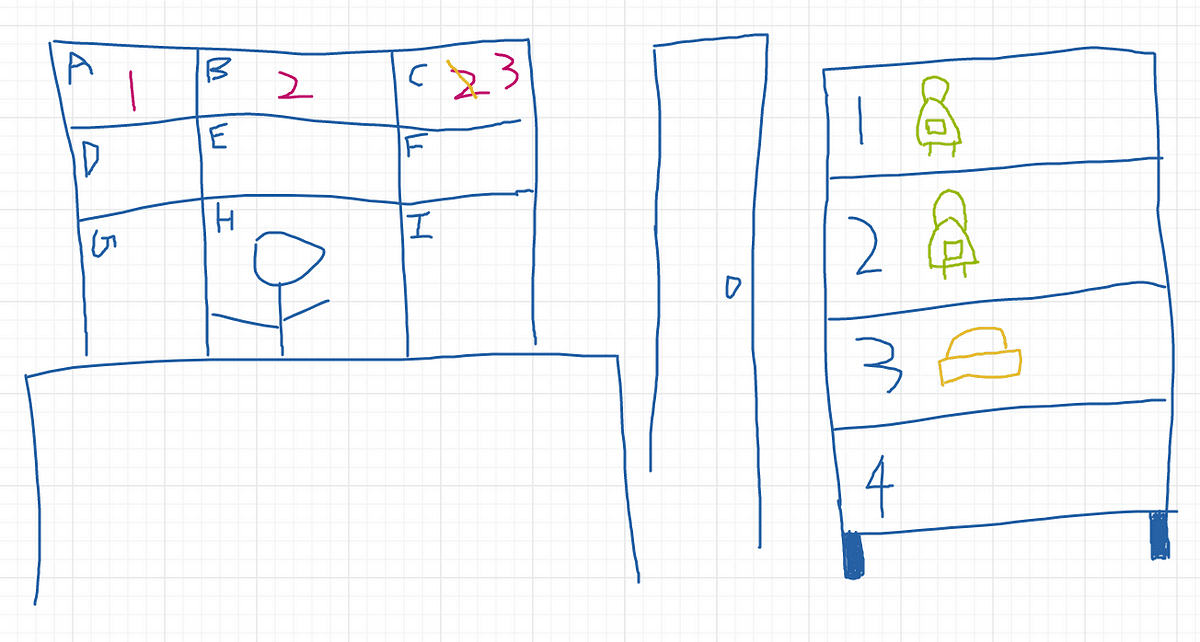 A 1 B 2 C 2 3
D E F
G H I
1
2
3
4